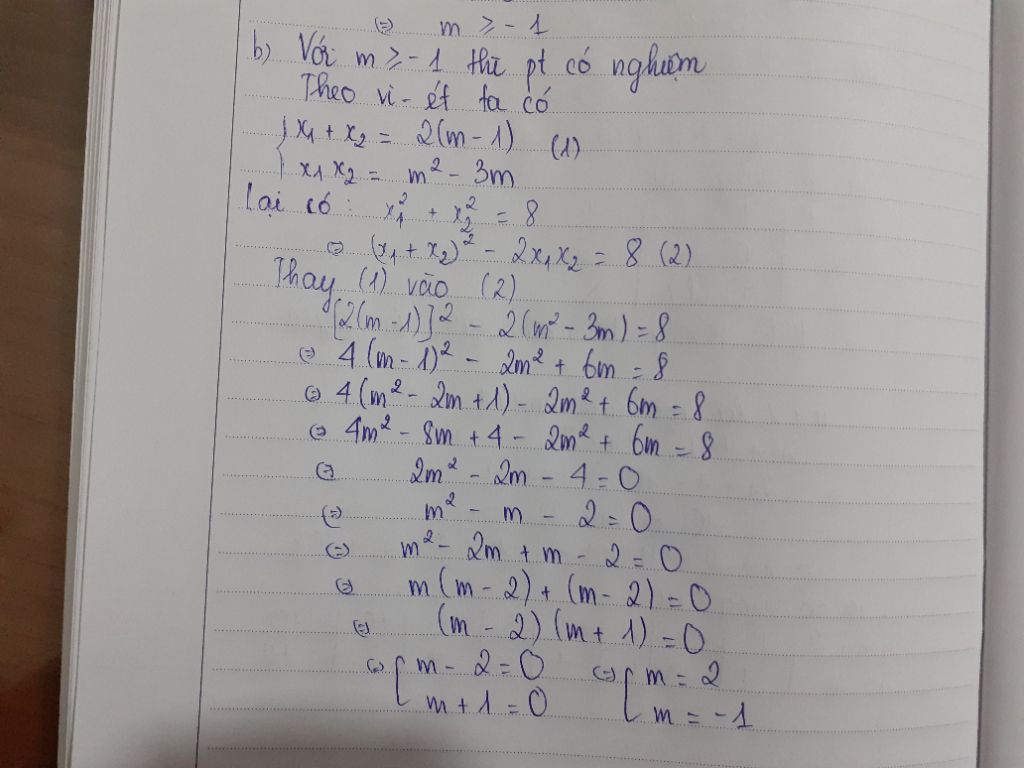 ⇔ m ≥ -1
b) Với m ≥ -1 thì pt có nghiệm
Theo vi-ét ta có
{ x₁ + x₂ = 2(m - 1) (1)
x₁x₂ = m² - 3m
Lại có: x₁² + x₂² = 8
⇔ (x₁ + x₂)² - 2x₁x₂ = 8 (2)
Thay (1) vào (2)
[2(m-1)]² - 2(m² - 3m) = 8
⇔ 4(m - 1)² - 2m² + 6m = 8
⇔ 4(m² - 2m + 1) - 2m² + 6m = 8
⇔ 4m² - 8m + 4 - 2m² + 6m = 8
⇔ 2m² - 2m - 4 = 0
⇔ m² - m - 2 = 0
⇔ m² - 2m + m - 2 = 0
⇔ m(m - 2) + (m - 2) = 0
⇔ (m - 2)(m + 1) = 0
⇔ [ m - 2 = 0 ⇔ [ m = 2
m + 1 = 0 m = -1